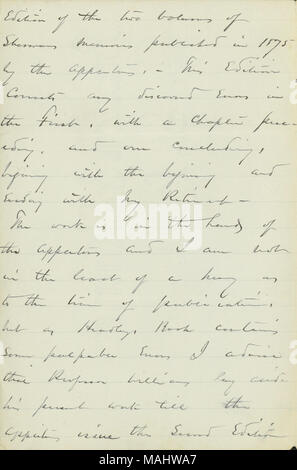 Edition of the two volumes of
Shermans Memoirs published in 1875
by the Appletons, - This Edition
Corrects any discovered Errors in
the First, with a Chapter prec-
eding, and one concluding,
begining with the begining and
Ending with my Retiremt -
The work is in the hands of
the Appletons and I am not
in the least of a hurry as
to the time of publication,
but as Headleys Book contains
some palpable Errors I advise
that Professor Williams lay aside
his present work till the
Appletons issue the Second Edition
alamy
Image ID: MALHWA7
www.alamy.com